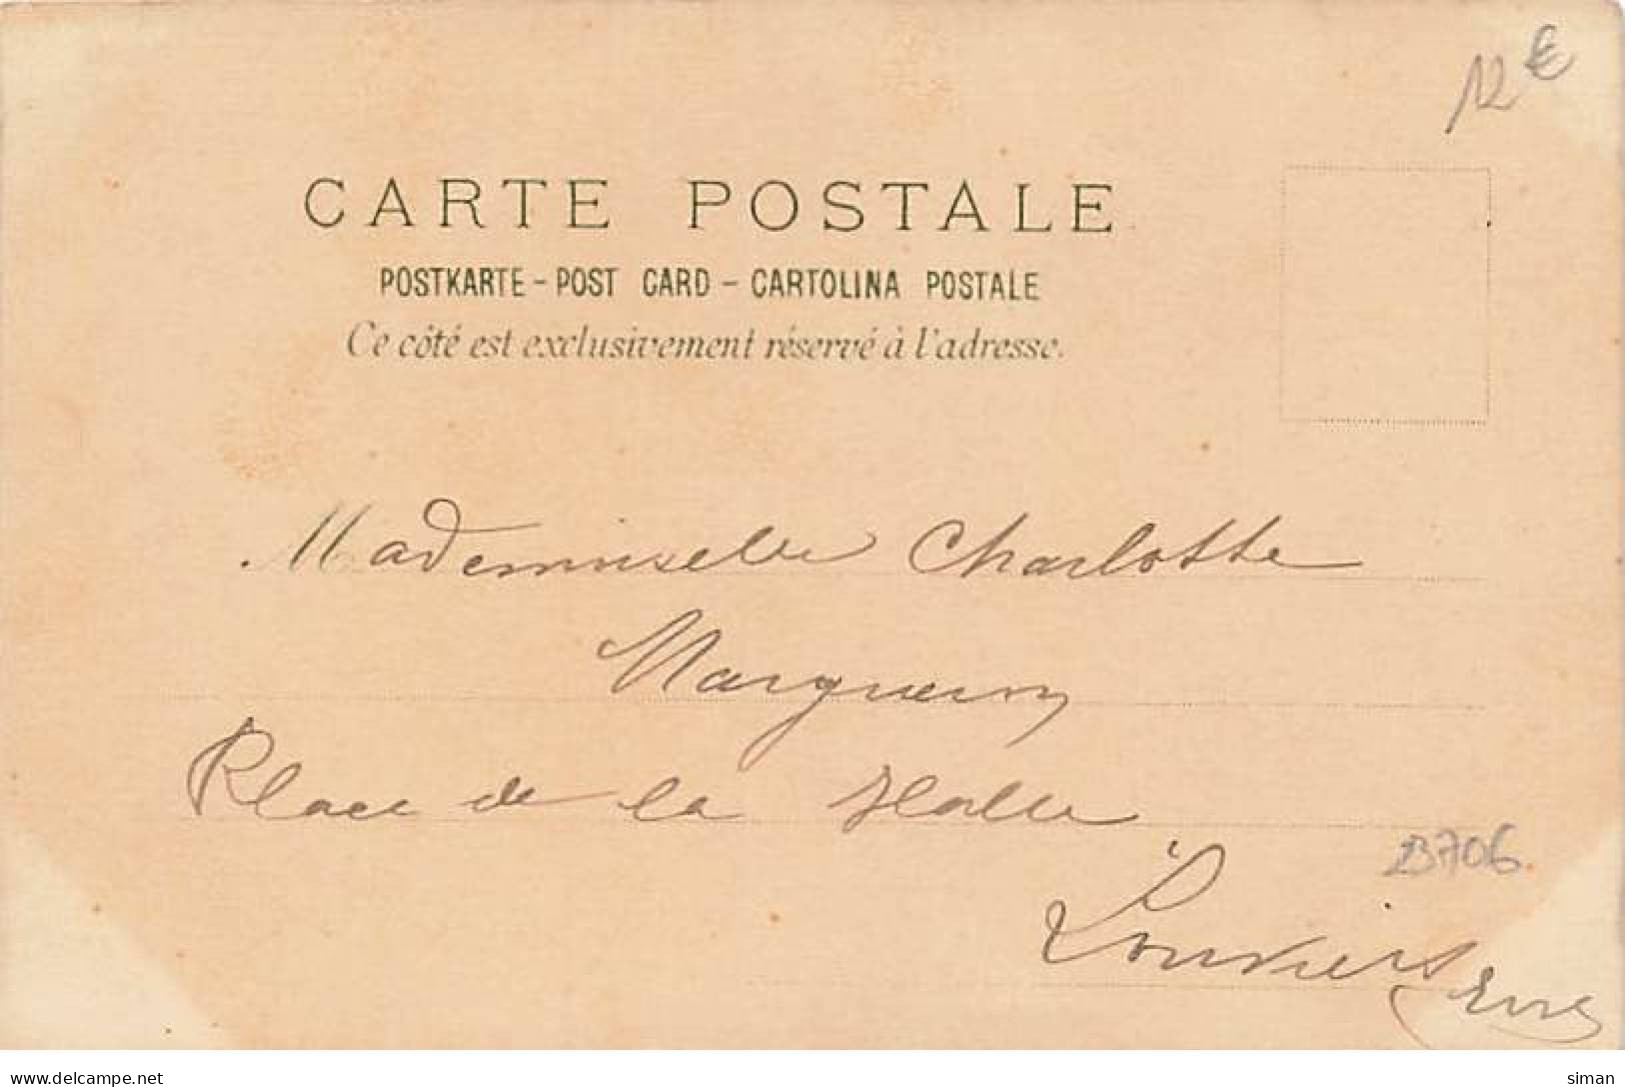 12 €
CARTE POSTALE
POSTKARTE - POST CARD - CARTOLINA POSTALE
Ce côté est exclusivement réservé à l'adresse.
Mademoiselle Charlotte
Marguerin
Place de la Halle
23706
Louviers
Eure
www.delcampe.net
siman